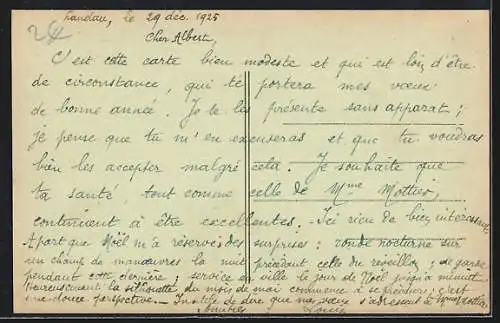 Landau, le 29 déc. 1925
Cher Albert,
C'est cette carte bien modeste et qui est loin d'être
de circonstance, qui te portera mes vœux
de bonne année. Je te les présente sans apparat ;
je pense que tu m'en excuseras et que tu voudras
bien les accepter malgré cela. Je souhaite que
ta santé tout comme celle de Mme Mottier,
continuent à être excellentes. Ici rien de bien intéressant
A part que Noël m'a réservé des surprises : ronde nocturne sur
un champ de manœuvres la nuit précédant celle du réveillon ; de garde
pendant cette dernière ; service en ville le jour de Noël jusqu'à minuit.
Heureusement la silhouette du mois de mai commence à se préciser ; c'est
une douce perspective. Inutile de dire que mes vœux s'adressent à
Louis